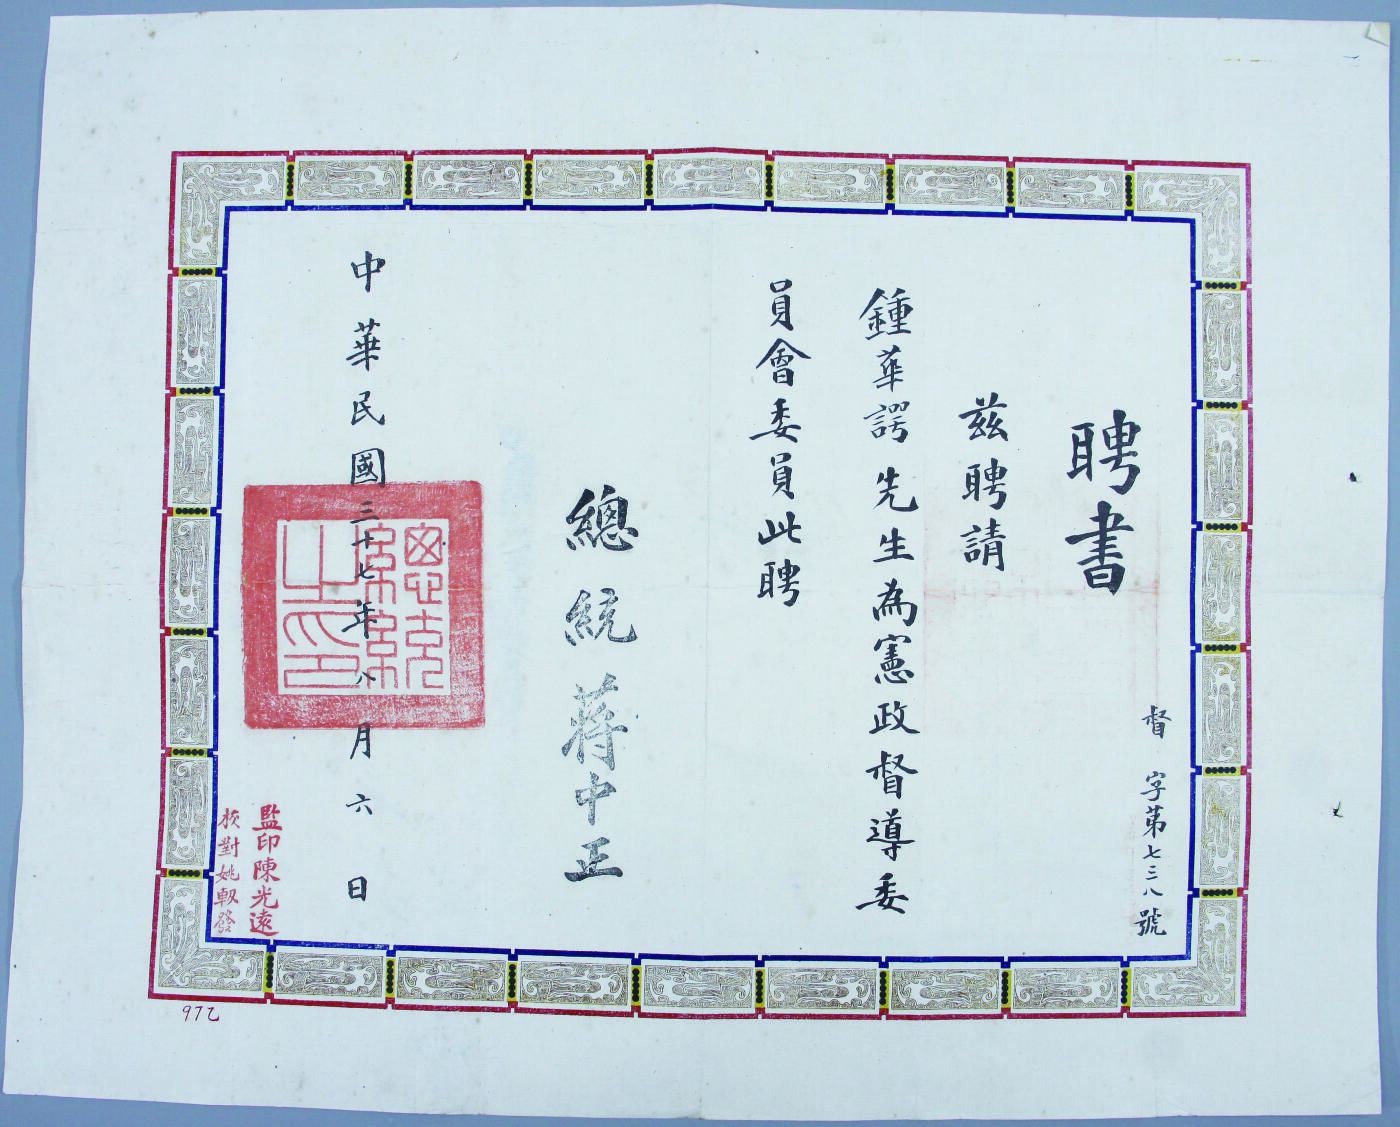 聘書
督 字第七三八號
茲聘請
鍾華諤先生為憲政督導委
員會委員此聘
總統蔣中正
中華民國三十七年八月六日
總統之印
監印陳光遠
校對姚軔發
97乙